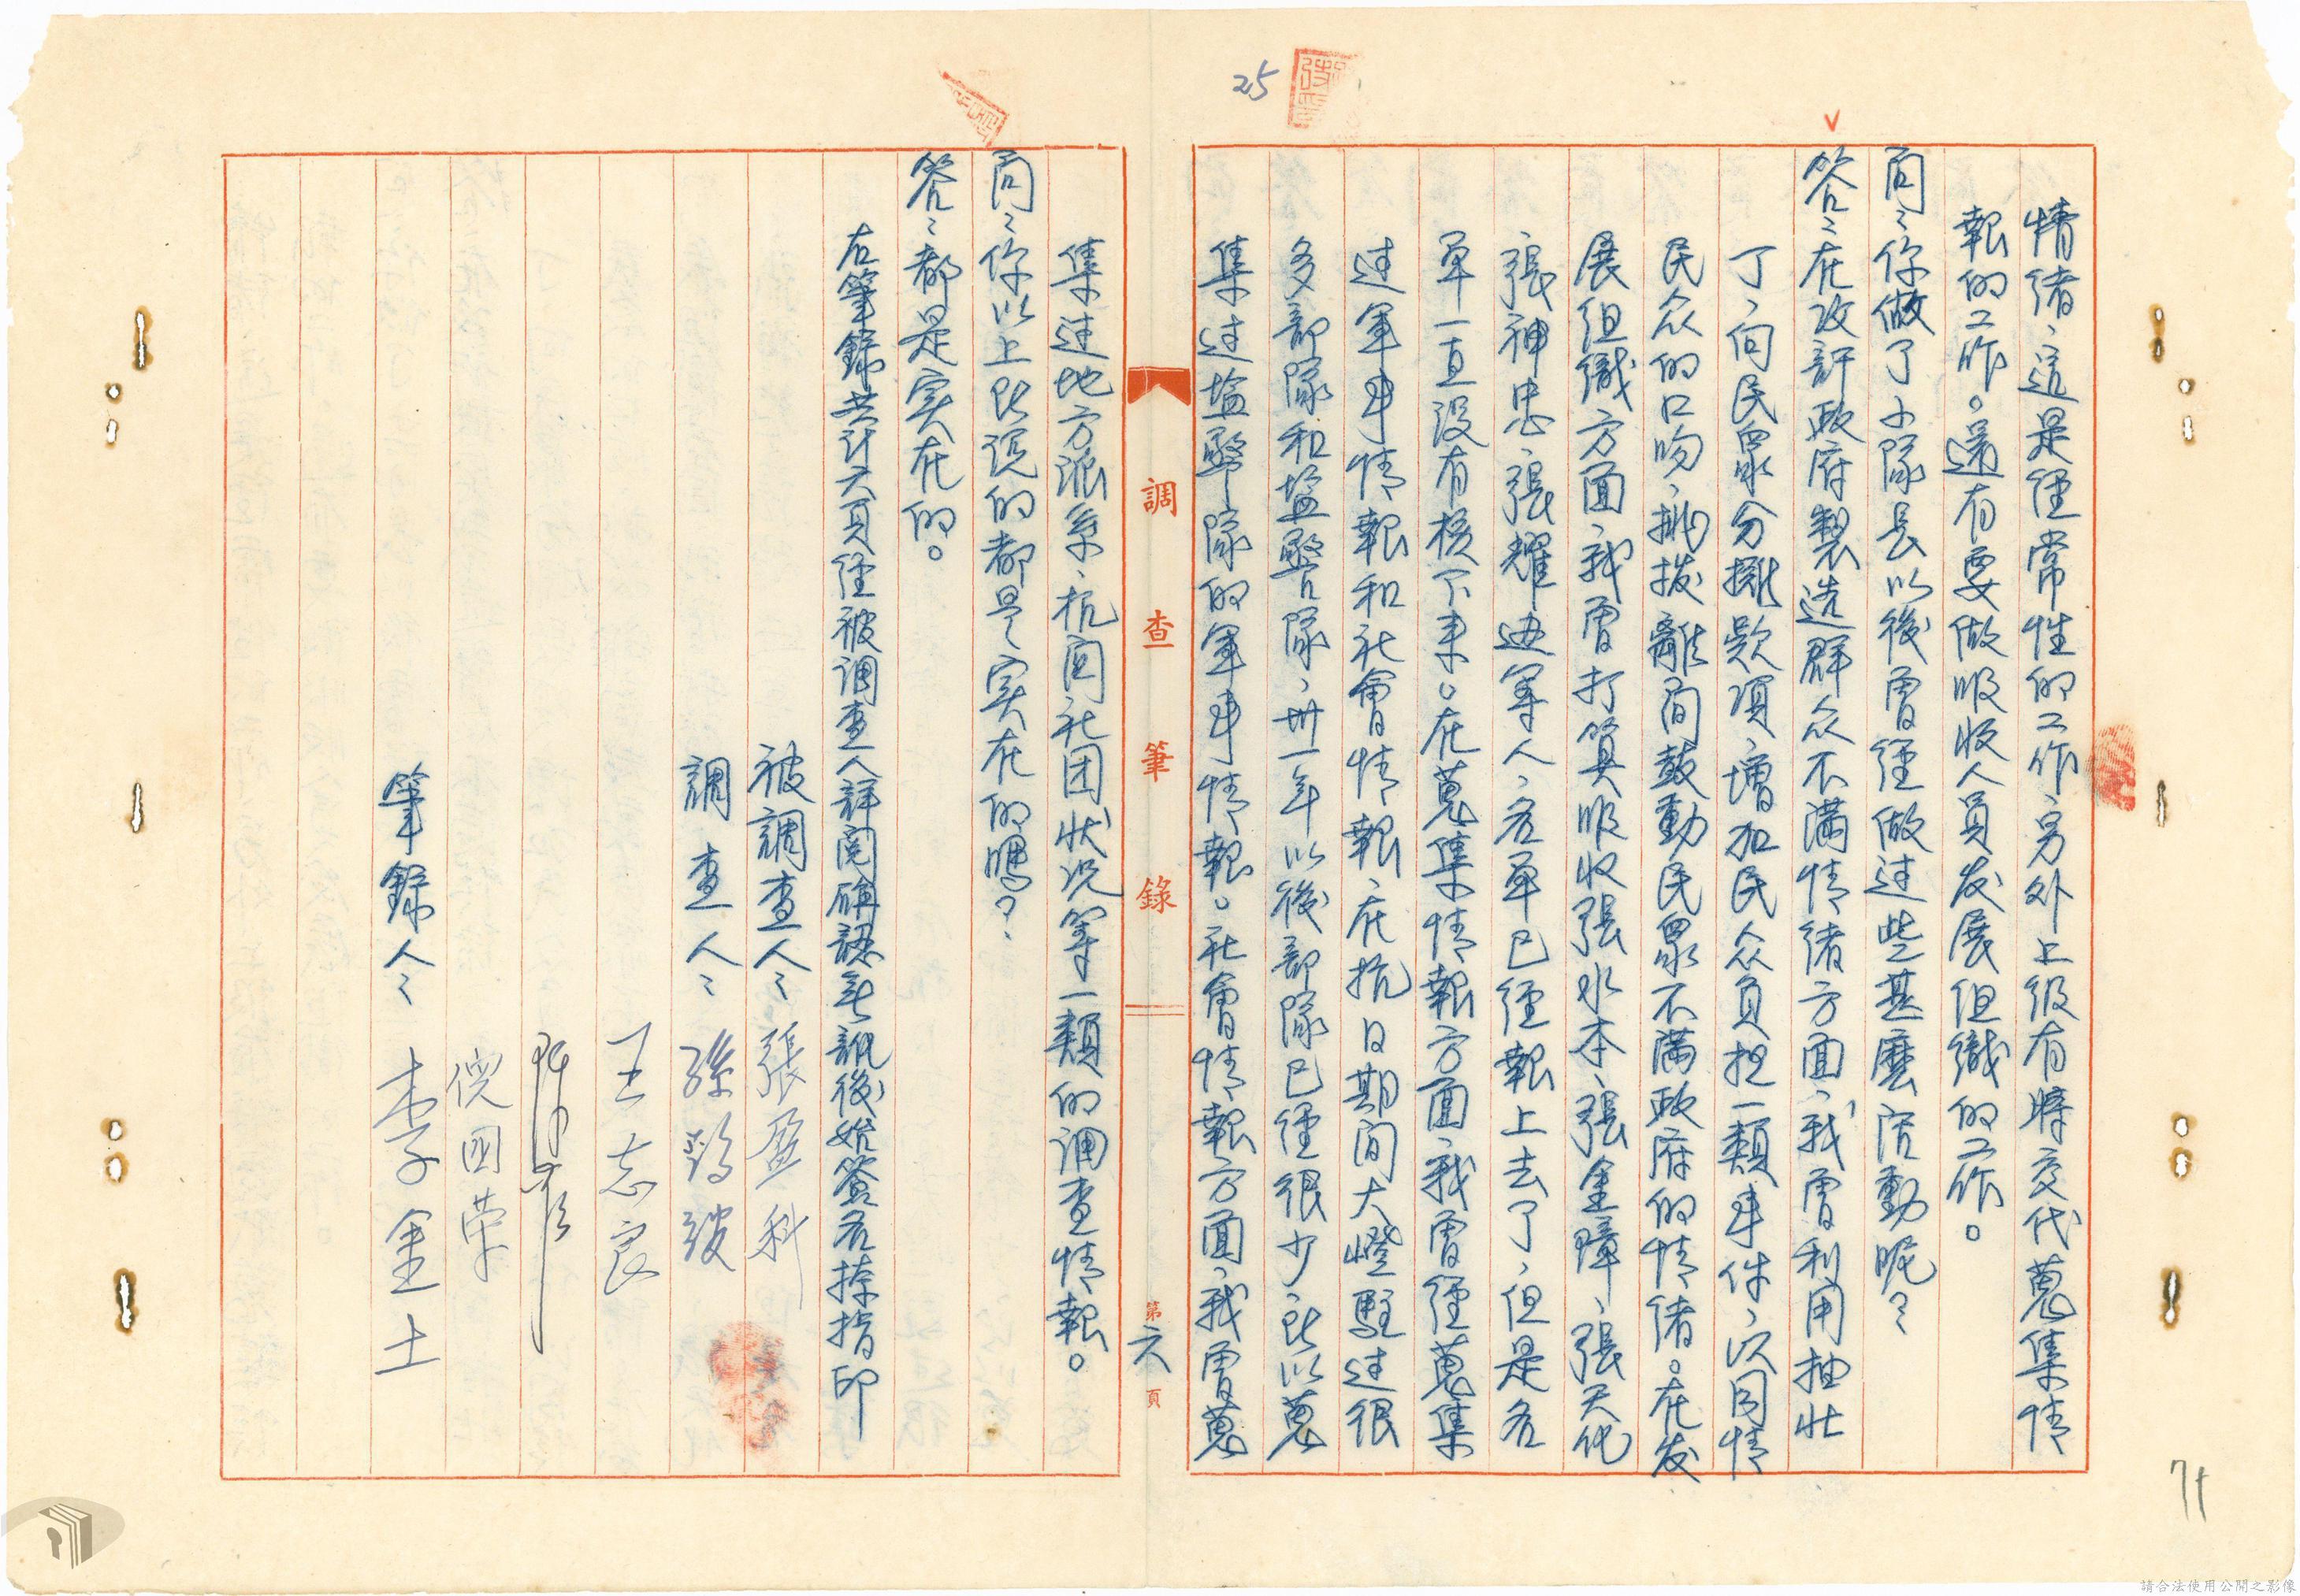 25
情緒、這是經常性的工作、另外上級有時交代蒐集情
報的工作。還有要做吸收人員发展組織的工作。
問：你做了小隊長以後曾經做过些甚麼活動呢？
答：在攻訐政府製造群众不滿情緒方面、我曾利用抽壯
丁、向民眾分攤款項、增加民众負担一類事件、以同情
民众的口吻、挑拨離间鼓動民眾不滿政府的情緒。在发
展组織方面、我曾打算吸收張水本、張金璋、張天化
張神忠、張耀
等人、名单已经報上去了、但是名
单一直没有核下来。在蒐集情報方面、我曾經蒐集
过軍事情報和社會情報、在抗日期间大嶝駐过很
多部隊和塩警隊、卅一年以後部隊已經很少、所以蒐
集过塩警隊的軍事情報。社會情報方面、我曾蒐
調查筆錄
第六頁
集过地方派系、机関社团状况等一類的调查情報。
問：你以上所说的都是实在的嗎？
答：都是实在的。
右筆錄共计六頁經被调查人詳閱確認無訛後始簽名捺指印
被調查人：張盈科
調查人：孫
王志良
倪国荣
筆錄人：李金土
71
請合法使用公開之影像